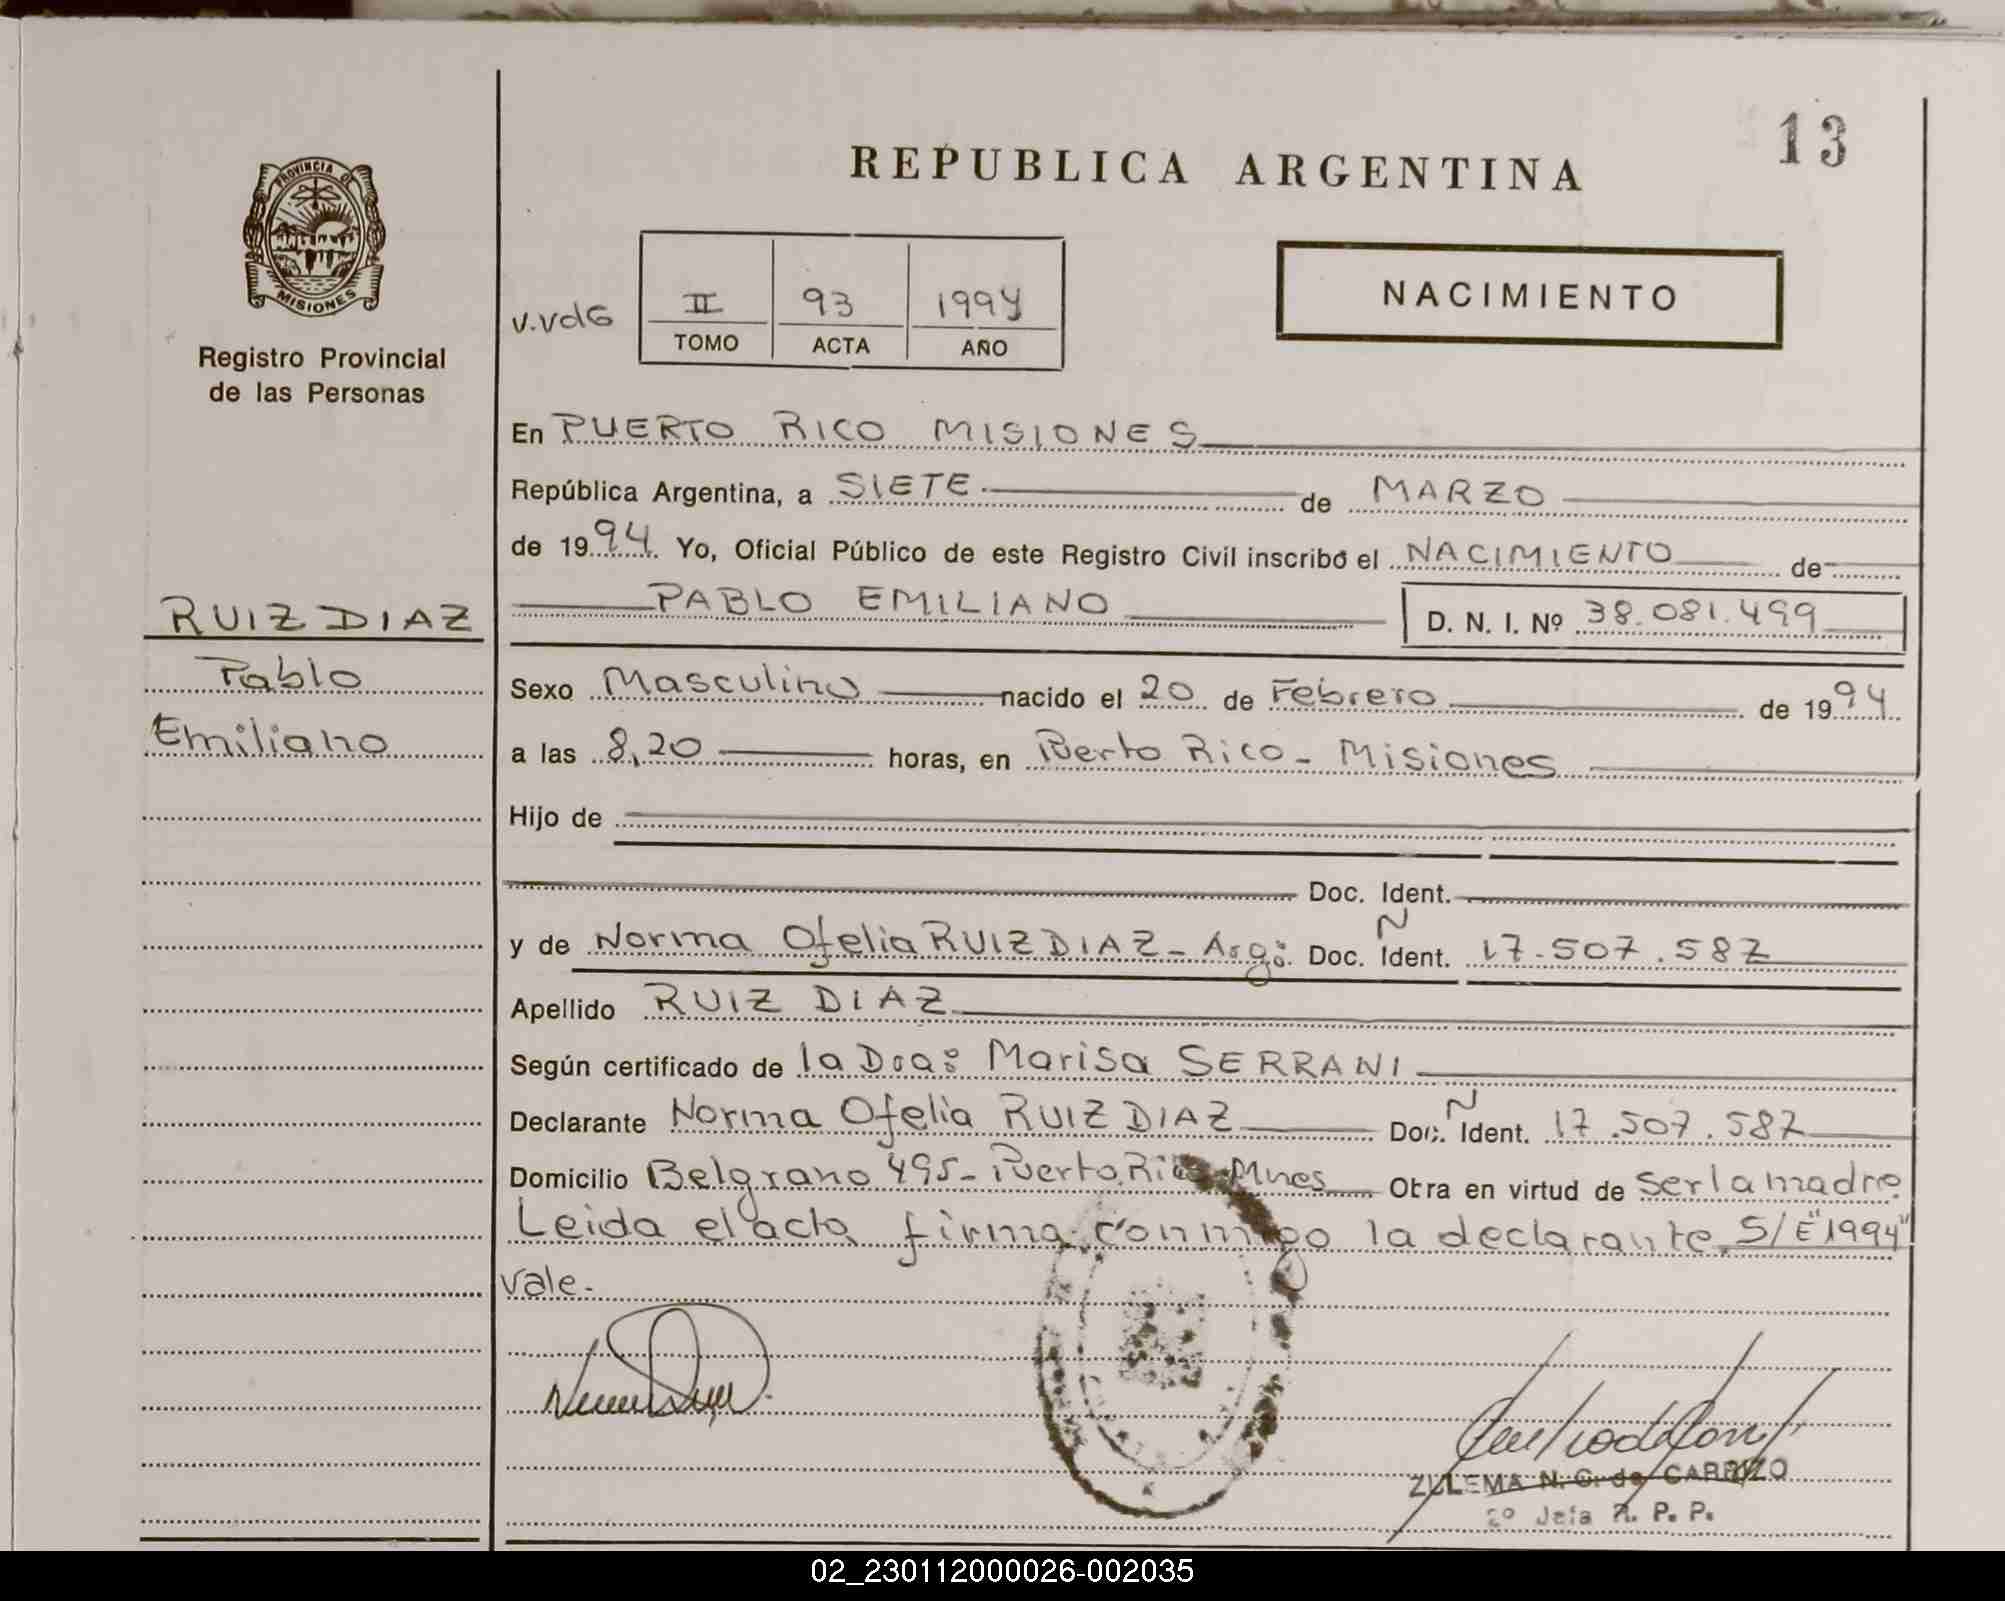 13
REPUBLICA ARGENTINA
PROVINCIA DE
MISIONES
Registro Provincial
de las Personas
NACIMIENTO
v.vdG
II 93 1994
TOMO ACTA AÑO
En PUERTO RICO MISIONES
República Argentina, a SIETE de MARZO
de 1994. Yo, Oficial Público de este Registro Civil inscribo el NACIMIENTO de
PABLO EMILIANO D. N. I. Nº 38.081.499
RUIZ DIAZ
Pablo
Emiliano
Sexo Masculino nacido el 20 de Febrero de 1994.
a las 8,20 horas, en Puerto Rico - Misiones
Hijo de
Doc. Ident.
y de Norma Ofelia RUIZ DIAZ - Arg: Doc. N Ident. 17.507.587
Apellido RUIZ DIAZ
Según certificado de la Dra: Marisa SERRANI
Declarante Norma Ofelia RUIZ DIAZ Doc. N Ident. 17.507.587
Domicilio Belgrano 495 - Puerto Rico - Mnes Obra en virtud de ser la madre.
Leida el acta firma conmigo la declarante. S/E "1994"
vale.
ZULEMA N. G. de CARRIZO
2º Jefa R. P. P.
02_230112000026-002035